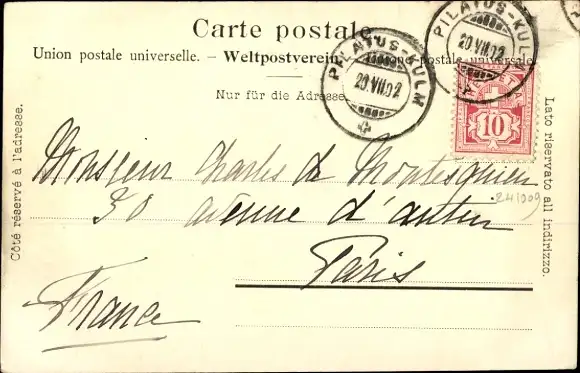 Carte postale.
Union postale universelle. — Weltpostverein. — Unione postale universale
Nur für die Adresse.
PILATUS-KULM
20.VII.02
PILATUS-KULM
20.VII.02
10
Côté réservé à l'adresse.
Lato riservato all indirizzo.
Monsieur Charles de Montesquieu
30 avenue d'antin
Paris
France